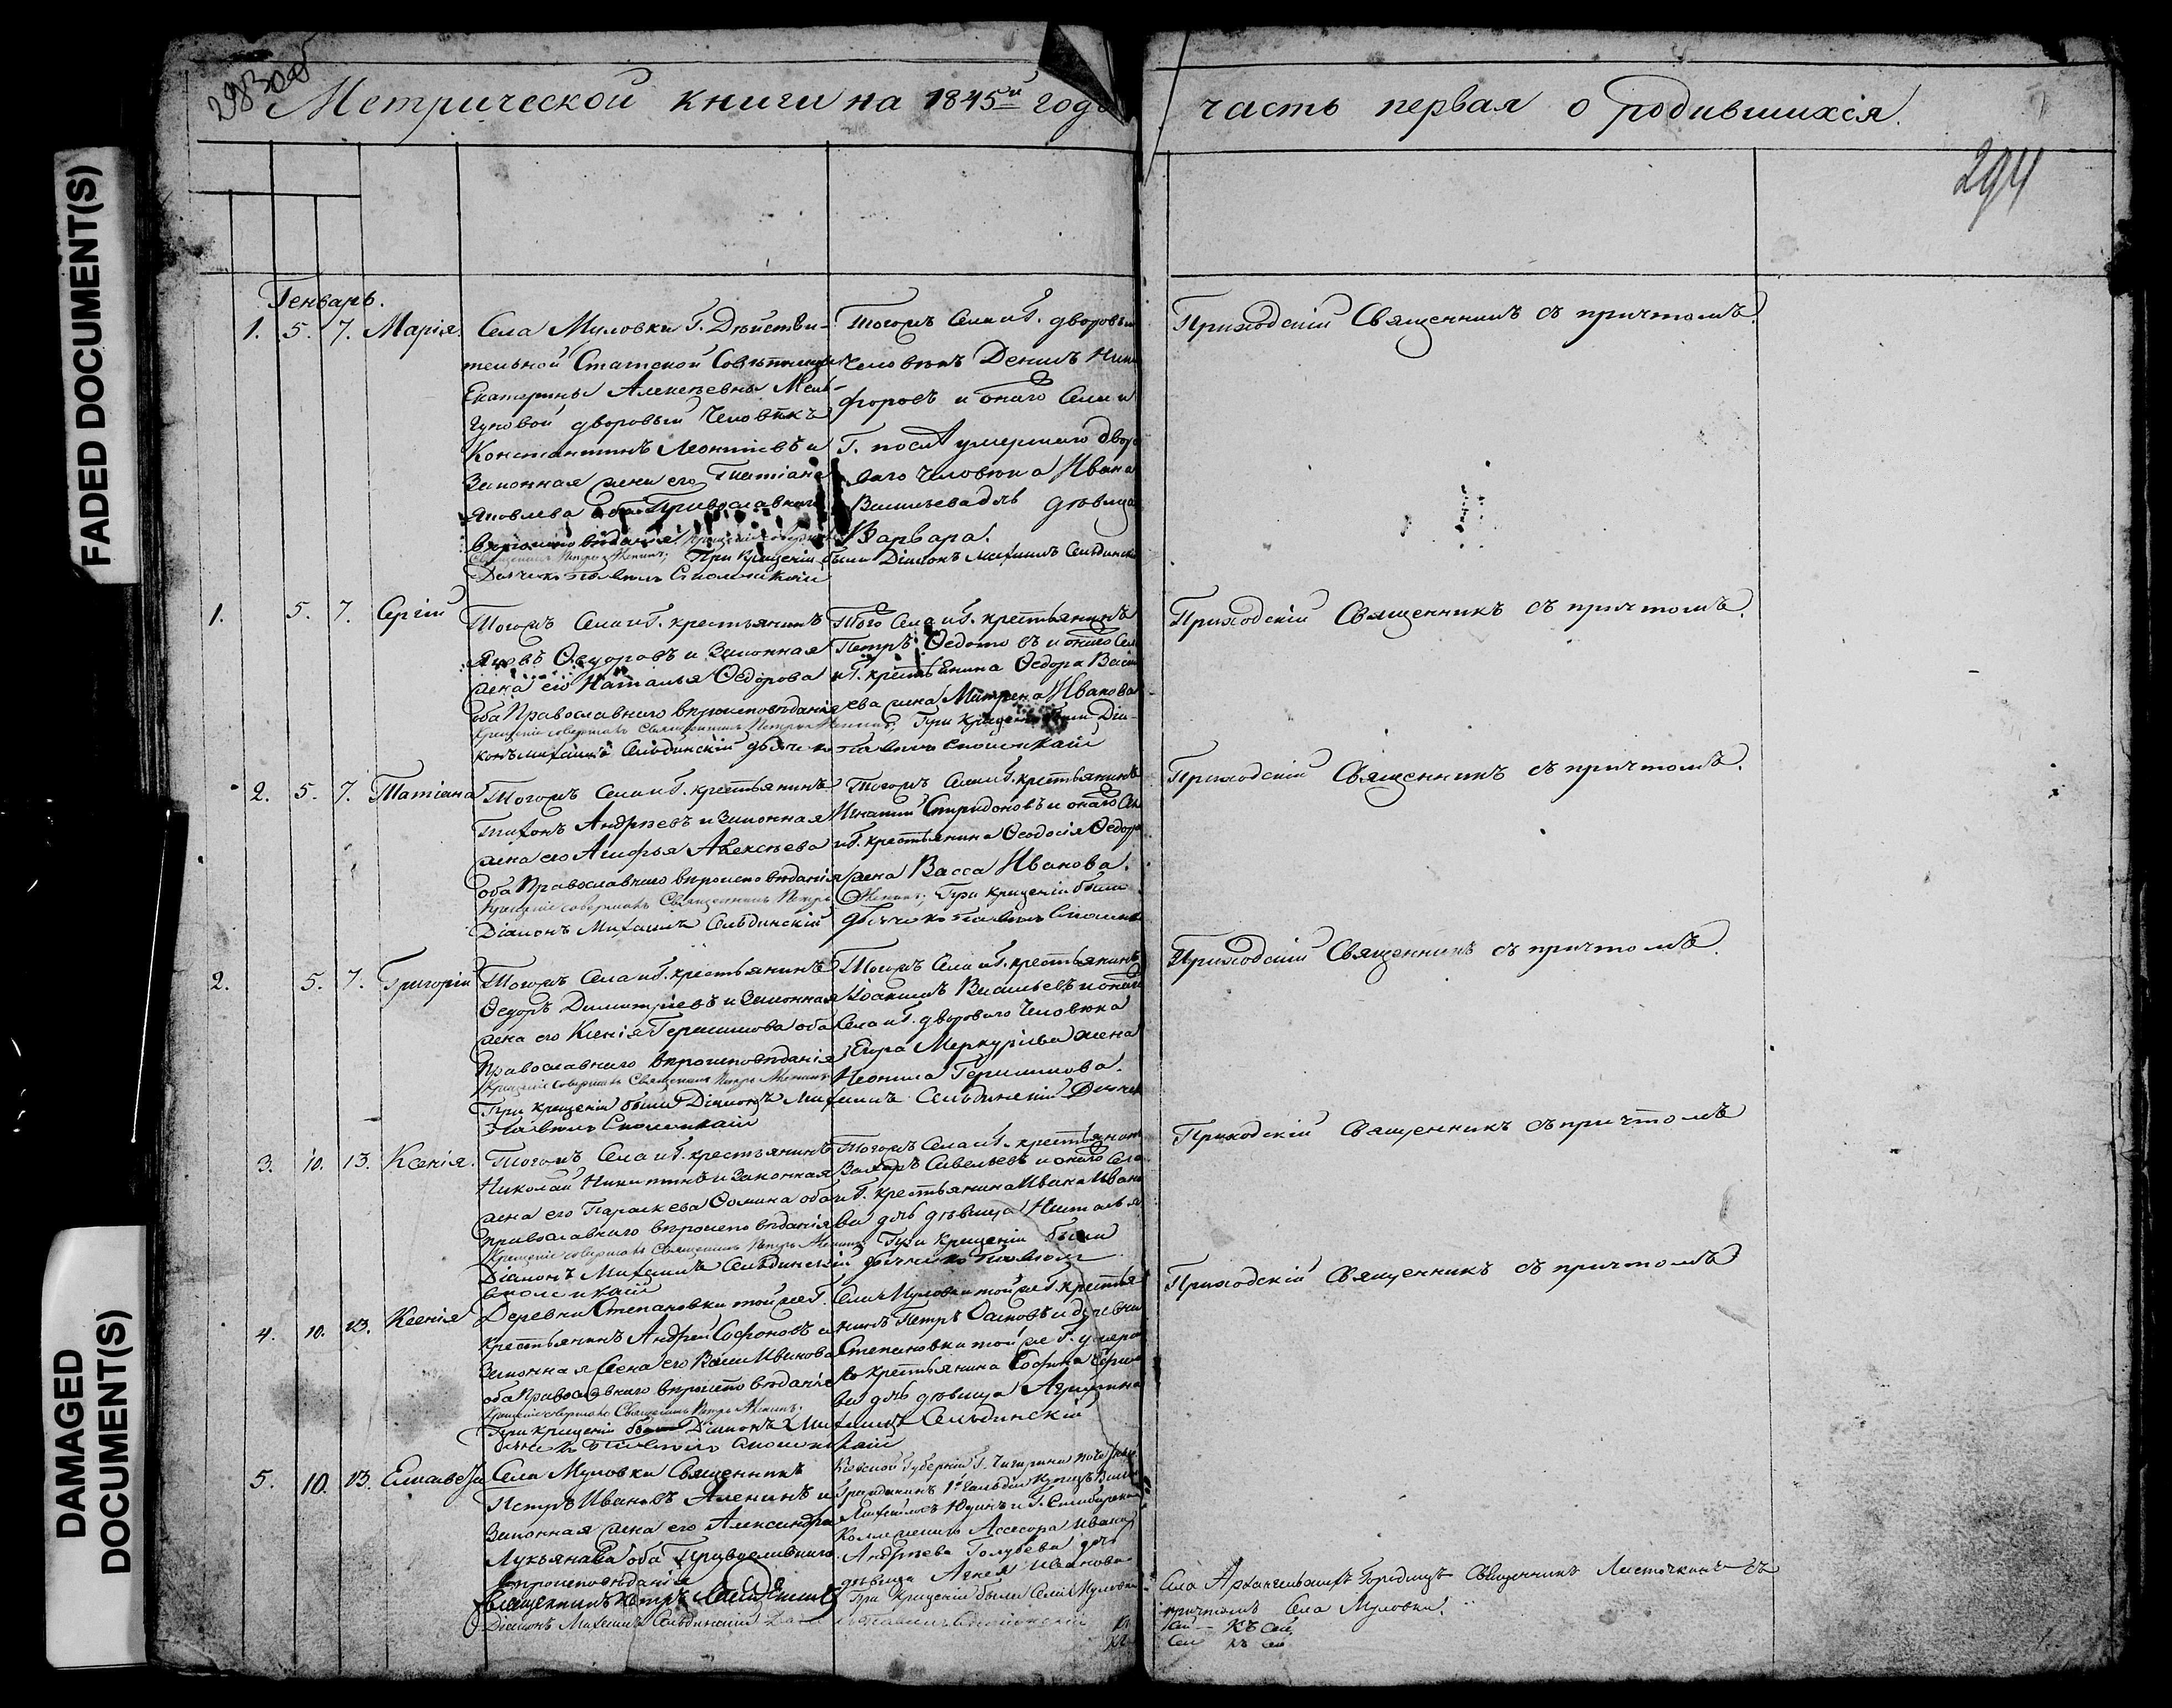 FADED DOCUMENT(S)
DAMAGED
DOCUMENT(S)
293 об
Метрической книги на 1845й года
часть первая о родившихся.
294
Генварь.
1. 5. 7. Марія.
Села Муловки Г. Дѣйстви-
тельной Статской Совѣтницы
Екатерины Алексѣевны Мель-
гуновой дворовый человѣкъ
Константинъ Леонтіевъ и
Законная жена его Татіана
Яковлева оба Православнаго
вѣроисповѣданія. Крещеніе совершалъ
Священникъ Петръ Аленинъ; При Крещеніи были Діаконъ Михаилъ Сельдинскій
Дьячекъ Павелъ Смоленскій
Тогожъ Села и Г. дворовый
человѣкъ Денисъ Ники
форовъ и онаго Села и
Г. послѣ умершаго дворо
ваго человѣка Ивана
Васильева дочь дѣвица
Варвара.
Приходскій Священникъ съ причтомъ.
1. 5. 7. Сергій
Тогожъ Села и Г. крестьянинъ
Яковъ Ѳедоровъ и Законная
жена его Наталья Ѳедорова
оба Православнаго вѣроисповѣданія
Крещеніе совершалъ Священникъ Петръ Аленинъ; При крещеніи были Діа-
конъ Михаилъ Сельдинскій дьячекъ Павелъ Смоленскій
Того Села и Г. крестьянинъ
Петръ Ѳедотовъ и онаго Села
и Г. крестьянина Ѳедора Василь
ева жена Матрена Иванова
Приходскій Священникъ съ причтомъ.
2. 5. 7. Татіана
Тогожъ Села и Г. крестьянинъ
Тихонъ Андреевъ и Законная
жена его Агафья Алексѣева
оба Православнаго вѣроисповѣданія
Крещеніе совершалъ Священникъ Петръ Аленинъ; При крещеніи были
Діаконъ Михаилъ Сельдинскій дьячекъ Павелъ Смоленс
Тогожъ Села и Г. крестьянинъ
Игнатій Спиридоновъ и онаго Сел
и Г. крестьянина Ѳеодосія Ѳедоро
жена Васса Иванова.
Приходскій Священникъ съ причтомъ.
2. 5. 7. Григорій
Тогожъ Села и Г. крестьянинъ
Ѳедоръ Димитріевъ и Законная
жена его Ксенія Герасимова оба
Православнаго вѣроисповѣданія
Крещеніе совершалъ Священникъ Петръ Аленинъ
При крещеніи были Діаконъ Михаилъ Сельдинскій Дьячек
Павелъ Смоленскій
Тогожъ Села и Г. крестьянинъ
Іоакимъ Васильевъ и онаго
Села и Г. двороваго человѣка
Егора Меркуріева жена
Неонила Герасимова.
Приходскій Священникъ съ причтомъ.
3. 10. 13. Ксенія.
Тогожъ Села и Г. крестьянинъ
Николай Никитинъ и Законная
жена его Параскева Ѳомина оба
православнаго вѣроисповѣданія
Крещеніе совершалъ Священникъ Петръ Аленинъ; При крещеніи были
Діаконъ Михаилъ Сельдинскій дьячекъ Павелъ
Смоленскій
Тогожъ Села и Г. крестьянинъ
Захаръ Савельевъ и онаго Села
и Г. крестьянина Ивана Ивано
ва дочь дѣвица Наталья
Приходскій Священникъ съ причтомъ
4. 10. 13. Ксенія
Деревни Степановки той же Г.
крестьянинъ Андрей Софоновъ и
Законная жена его Васса Иванова
оба Православнаго вѣроисповѣданія
Крещеніе совершалъ Священникъ Петръ Аленинъ.
При крещеніи были Діаконъ Михаилъ Сельдинскій
дьячекъ Павелъ Смоленскій
Села Муловки той же Г. крестья
нинъ Петръ Осиповъ и деревни
Степановки той же Г. умерша
го крестьянина Софона Серге
ва дочь дѣвица Агрипина
Приходскій Священникъ съ причтомъ
5. 10. 13. Елисавета
Села Муловки Священникъ
Петръ Ивановъ Аленинъ и
Законная жена его Александра
Лукьянова оба Православнаго
вѣроисповѣданія
Священникъ Петръ Аленинъ
Діаконъ Михаилъ Сельдинскій
Кіевской Губерніи Г. Чигирина почетный
Гражданинъ 1й Гильдіи Купецъ
Михайловъ Юдинъ и Г. Симбирска
Коллежскаго Ассесора Ивана
Андреева Голубева дочь
дѣвица Агнея Иванова
При крещеніи были Села Муловки
Павелъ Смоленскій
Села Архангельскаго Городища Священникъ Листочкинъ съ
причтомъ Села Муловки.